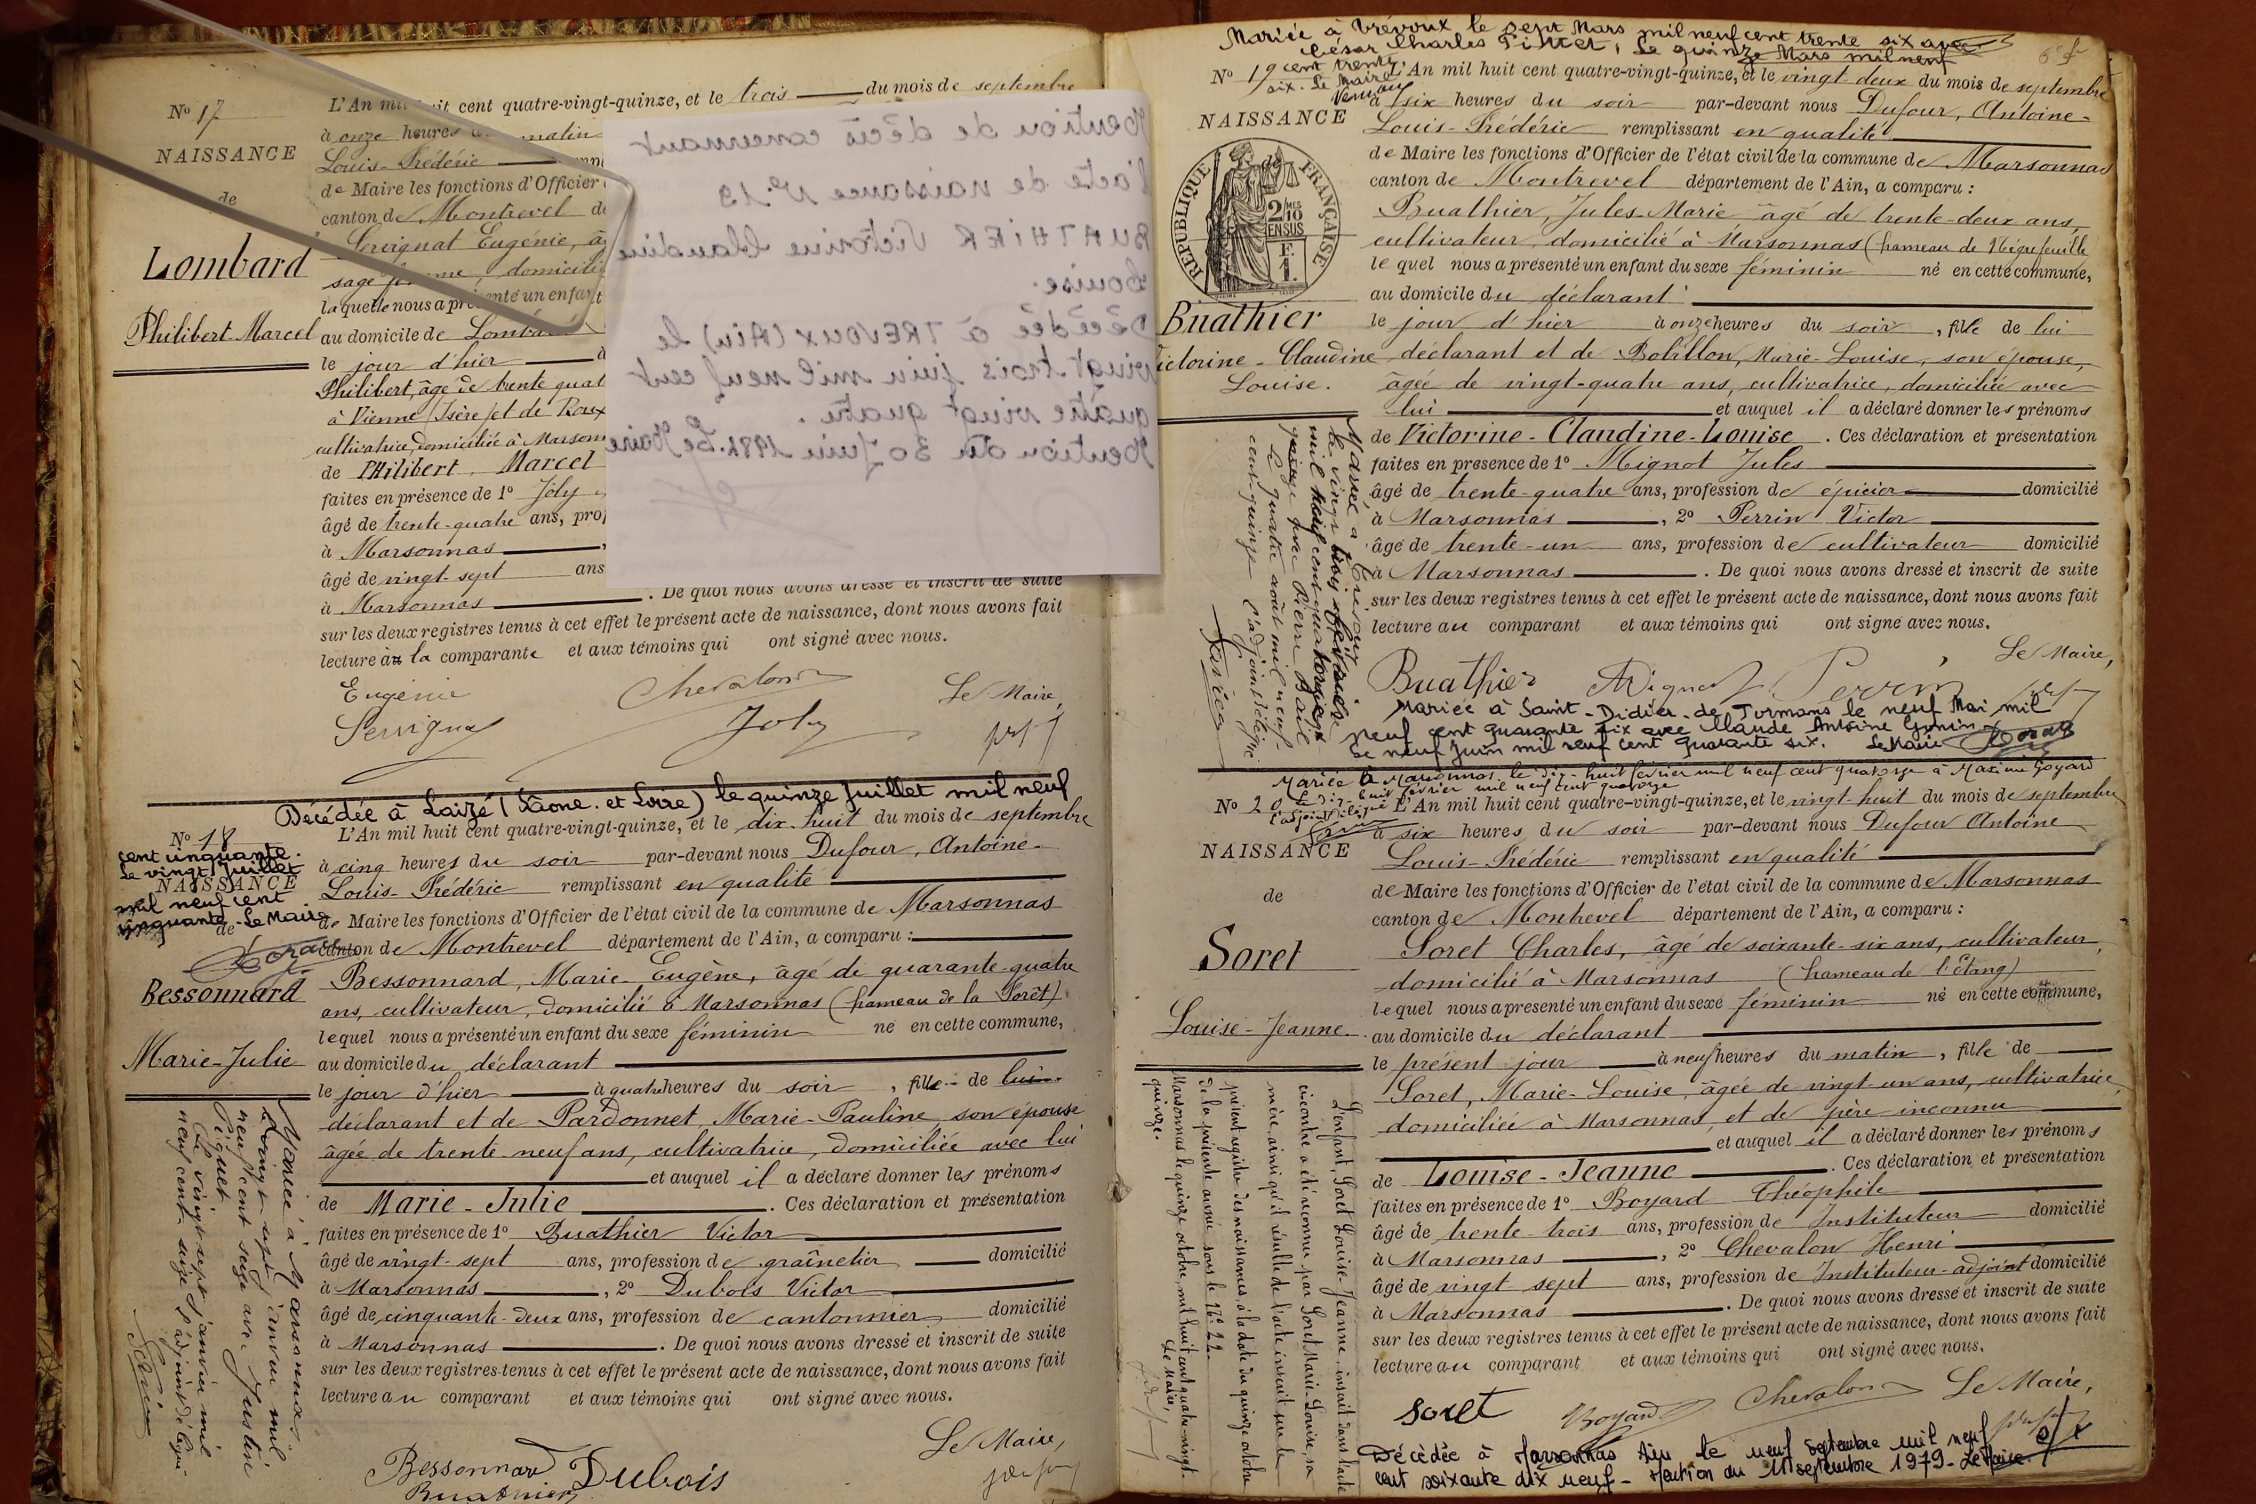 N° 17
NAISSANCE
de
Lombard
Philibert-Marcel
L'An mil huit cent quatre-vingt-quinze, et le trois du mois de septembre
à onze heures du matin
Louis-Frédéric
de Maire les fonctions d'Officier
canton de Montrevel
Servignat Eugénie,
sage femme, domicilié
laquelle nous a présenté un enfant
au domicile de Lombard
le jour d'hier
Philibert, âgé de trente quat
à Vienne (Isère) et de Roux
cultivatrice, domiciliée à Marsonn
de Philibert, Marcel
faites en présence de 1° Joly
âgé de trente-quatre ans, prof
à Marsonnas
âgé de vingt-sept ans
à Marsonnas . De quoi nous avons dressé et inscrit de suite
sur les deux registres tenus à cet effet le présent acte de naissance, dont nous avons fait
lecture à la comparante et aux témoins qui ont signé avec nous.
Eugénie
Servignat
Chevalon
Joly
Le Maire,
Mention de décès concernant
l'acte de naissance N° 19
BUATHIER Victorine Claudine
Louise.
Décédée à TREVOUX (Ain) le
vingt-trois juin mil neuf cent
quatre vingt quatre.
Mention du 30 Juin 1984. Le Maire
Décédée à Laizé (Saône-et-Loire) le quinze Juillet mil neuf
cent cinquante.
Le vingt Juillet
mil neuf cent
cinquante - Le Maire
N° 18
NAISSANCE
de
Bessonnard
Marie-Julie
L'An mil huit cent quatre-vingt-quinze, et le dix-huit du mois de septembre
à cinq heures du soir par-devant nous Dufour, Antoine-
Louis-Frédéric remplissant en qualité
de Maire les fonctions d'Officier de l'état civil de la commune de Marsonnas
canton de Montrevel département de l'Ain, a comparu :
Bessonnard, Marie-Eugène, âgé de quarante-quatre
ans, cultivateur, domicilié à Marsonnas (hameau de la Forêt)
lequel nous a présenté un enfant du sexe féminin né en cette commune,
au domicile du déclarant
le jour d'hier à quatre heures du soir, fille de lui
déclarant et de Pardonnet, Marie-Pauline, son épouse
âgée de trente-neuf ans, cultivatrice, domiciliée avec lui
et auquel il a déclaré donner les prénoms
de Marie-Julie . Ces déclaration et présentation
faites en présence de 1° Buathier Victor
âgé de vingt-sept ans, profession de grainetier domicilié
à Marsonnas , 2° Dubois Victor
âgé de cinquante-deux ans, profession de cantonnier domicilié
à Marsonnas . De quoi nous avons dressé et inscrit de suite
sur les deux registres tenus à cet effet le présent acte de naissance, dont nous avons fait
lecture au comparant et aux témoins qui ont signé avec nous.
Le Maire,
Bessonnard
Dubois
Buathier
Mariée à Marsonnas
le vingt-sept janvier mil
neuf cent seize avec Justin
Piquet
Le vingt-sept janvier mil
neuf cent seize
Mariée à Trévoux le sept Mars mil neuf cent trente six avec
César Charles Pittet, Le quinze Mars mil neuf
cent trente
six. Le Maire
N° 19
NAISSANCE
de
RÉPUBLIQUE FRANÇAISE
2/10 MES
EN SUS
F.
1.
Buathier
Victorine-Claudine
Louise.
L'An mil huit cent quatre-vingt-quinze, et le vingt-deux du mois de septembre
à six heures du soir par-devant nous Dufour, Antoine-
Louis-Frédéric remplissant en qualité
de Maire les fonctions d'Officier de l'état civil de la commune de Marsonnas
canton de Montrevel département de l'Ain, a comparu :
Buathier, Jules-Marie âgé de trente-deux ans,
cultivateur, domicilié à Marsonnas (hameau de
lequel nous a présenté un enfant du sexe féminin né en cette commune,
au domicile du déclarant
le jour d'hier à onze heures du soir, fille de lui
déclarant et de Bolillon, Marie-Louise, son épouse,
âgée de vingt-quatre ans, cultivatrice, domiciliée avec
lui et auquel il a déclaré donner les prénoms
de Victorine-Claudine-Louise . Ces déclaration et présentation
faites en présence de 1° Mignot Jules
âgé de trente-quatre ans, profession de épicier domicilié
à Marsonnas , 2° Perrin Victor
âgé de trente-un ans, profession de cultivateur domicilié
à Marsonnas . De quoi nous avons dressé et inscrit de suite
sur les deux registres tenus à cet effet le présent acte de naissance, dont nous avons fait
lecture au comparant et aux témoins qui ont signé avec nous.
Le Maire,
Buathier Mignot Perrin
Mariée à Saint-Didier-de-Formans le neuf Mai mil
neuf cent quarante six avec Claude Antoine Gonin
Le neuf Juin mil neuf cent quarante six. Le Maire
Mariée à Trévoux
le vingt trois
mil neuf cent quatorze
avec Pierre
Le quatre août mil neuf
cent quinze L'adjoint délégué
Mariée à Marsonnas le dix-huit février mil neuf cent quatorze à Maxime Goyard
Le dix-huit février mil neuf cent quatorze
L'adjoint délégué
N° 20
NAISSANCE
de
Soret
Louise-Jeanne
L'An mil huit cent quatre-vingt-quinze, et le vingt-huit du mois de septembre
à six heures du soir par-devant nous Dufour Antoine
Louis-Frédéric remplissant en qualité
de Maire les fonctions d'Officier de l'état civil de la commune de Marsonnas
canton de Montrevel département de l'Ain, a comparu :
Soret Charles, âgé de soixante-six ans, cultivateur,
domicilié à Marsonnas (hameau de l'Etang)
lequel nous a présenté un enfant du sexe féminin né en cette commune,
au domicile du déclarant
le présent jour à neuf heures du matin, fille de
Soret, Marie-Louise, âgée de vingt-un ans, cultivatrice,
domiciliée à Marsonnas, et de père inconnu
et auquel il a déclaré donner les prénoms
de Louise-Jeanne . Ces déclaration et présentation
faites en présence de 1° Boyard Théophile
âgé de trente-trois ans, profession de Instituteur domicilié
à Marsonnas , 2° Chevalon Henri
âgé de vingt sept ans, profession de Instituteur-adjoint domicilié
à Marsonnas . De quoi nous avons dressé et inscrit de suite
sur les deux registres tenus à cet effet le présent acte de naissance, dont nous avons fait
lecture au comparant et aux témoins qui ont signé avec nous.
Soret Boyard Chevalon Le Maire,
Décédée à Marsonnas Ain le neuf septembre mil neuf
cent soixante dix neuf - Mention du 11 septembre 1979 - Le Maire
L'enfant, Soret Louise-Jeanne, inscrit dans l'acte
ci-contre a été reconnu par Soret Marie-Louise, sa
mère, ainsi qu'il résulte de l'acte inscrit sur le
présent registre des naissances à la date du quinze octobre
de la présente année sous le N° 22.
Marsonnas le quinze octobre mil huit cent quatre-vingt-
quinze.
Le Maire,